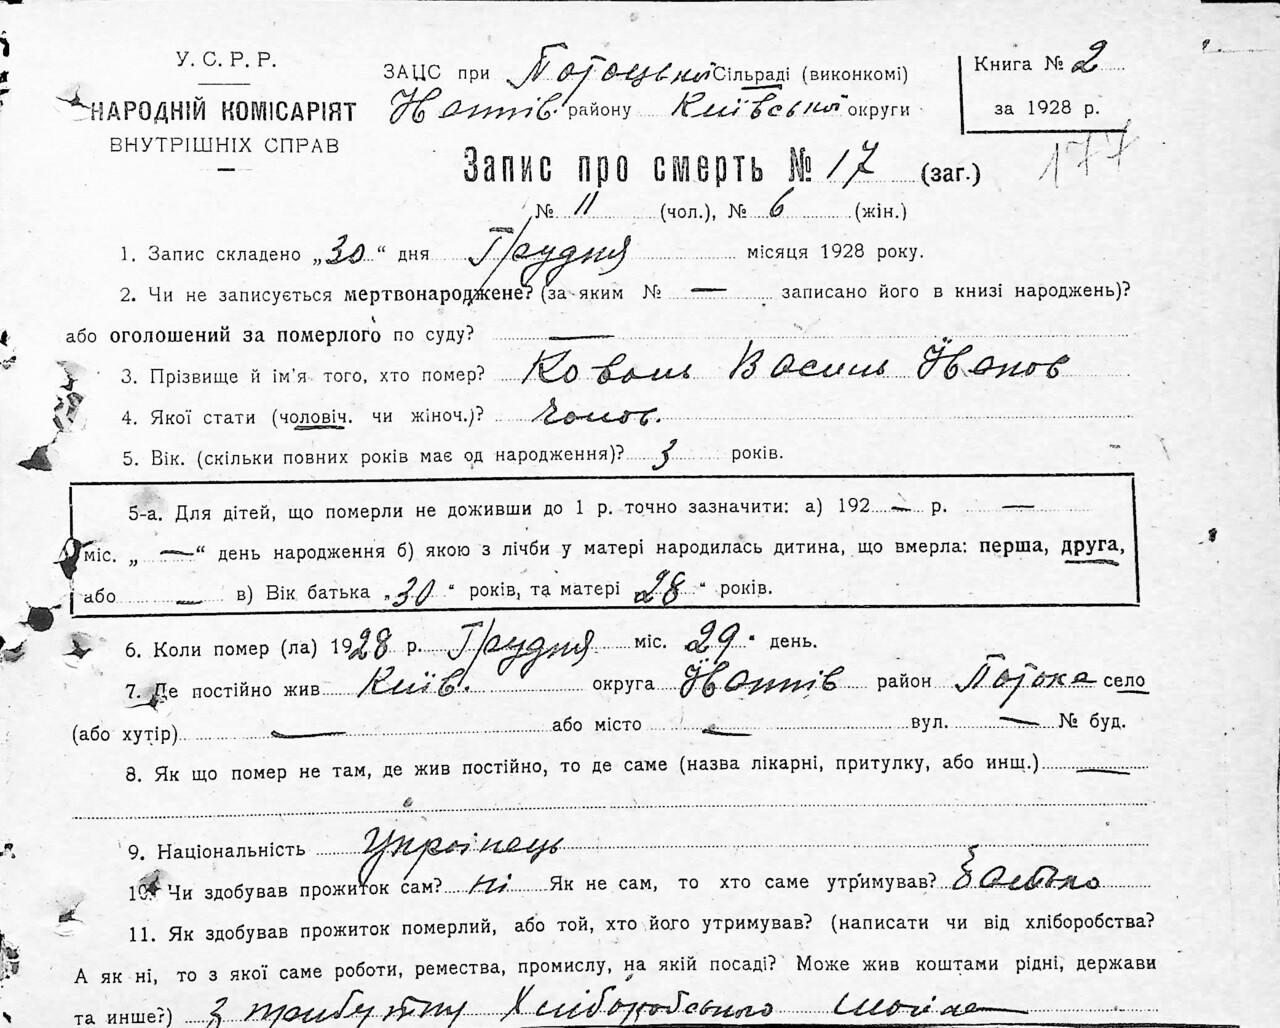 У. С. Р. Р.
НАРОДНІЙ КОМІСАРІЯТ
ВНУТРІШНІХ СПРАВ
ЗАЦС при Потоцькій Сільраді (виконкомі)
району Київської округи
Книга № 2
за 1928 р.
177
Запис про смерть № 17 (заг.)
№ 11 (чол.), № 6 (жін.)
1. Запис складено „30“ дня Грудня місяця 1928 року.
2. Чи не записується мертвонароджене? (за яким № — записано його в книзі народжень)?
або оголошений за померлого по суду? —
3. Прізвище й ім'я того, хто помер? Коваль Василь Іванов
4. Якої стати (чоловіч. чи жіноч.)? чолов.
5. Вік. (скільки повних років має од народження)? 3 років.
5-а. Для дітей, що померли не доживши до 1 р. точно зазначити: а) 192 — р. —
міс. „ — “ день народження б) якою з лічби у матері народилась дитина, що вмерла: перша, друга,
або — в) Вік батька „30“ років, та матері 28“ років.
6. Коли помер (ла) 1928 р. Грудня міс. 29 день.
7. Де постійно жив Київ. округа район Потока село
(або хутір) — або місто — вул. — № буд.
8. Як що помер не там, де жив постійно, то де саме (назва лікарні, притулку, або инщ.) —
9. Національність Українець
10. Чи здобував прожиток сам? ні Як не сам, то хто саме утримував? батько
11. Як здобував прожиток померлий, або той, хто його утримував? (написати чи від хліборобства?
А як ні, то з якої саме роботи, ремества, промислу, на якій посаді? Може жив коштами рідні, держави
та инше?) З прибутку Хліборобського